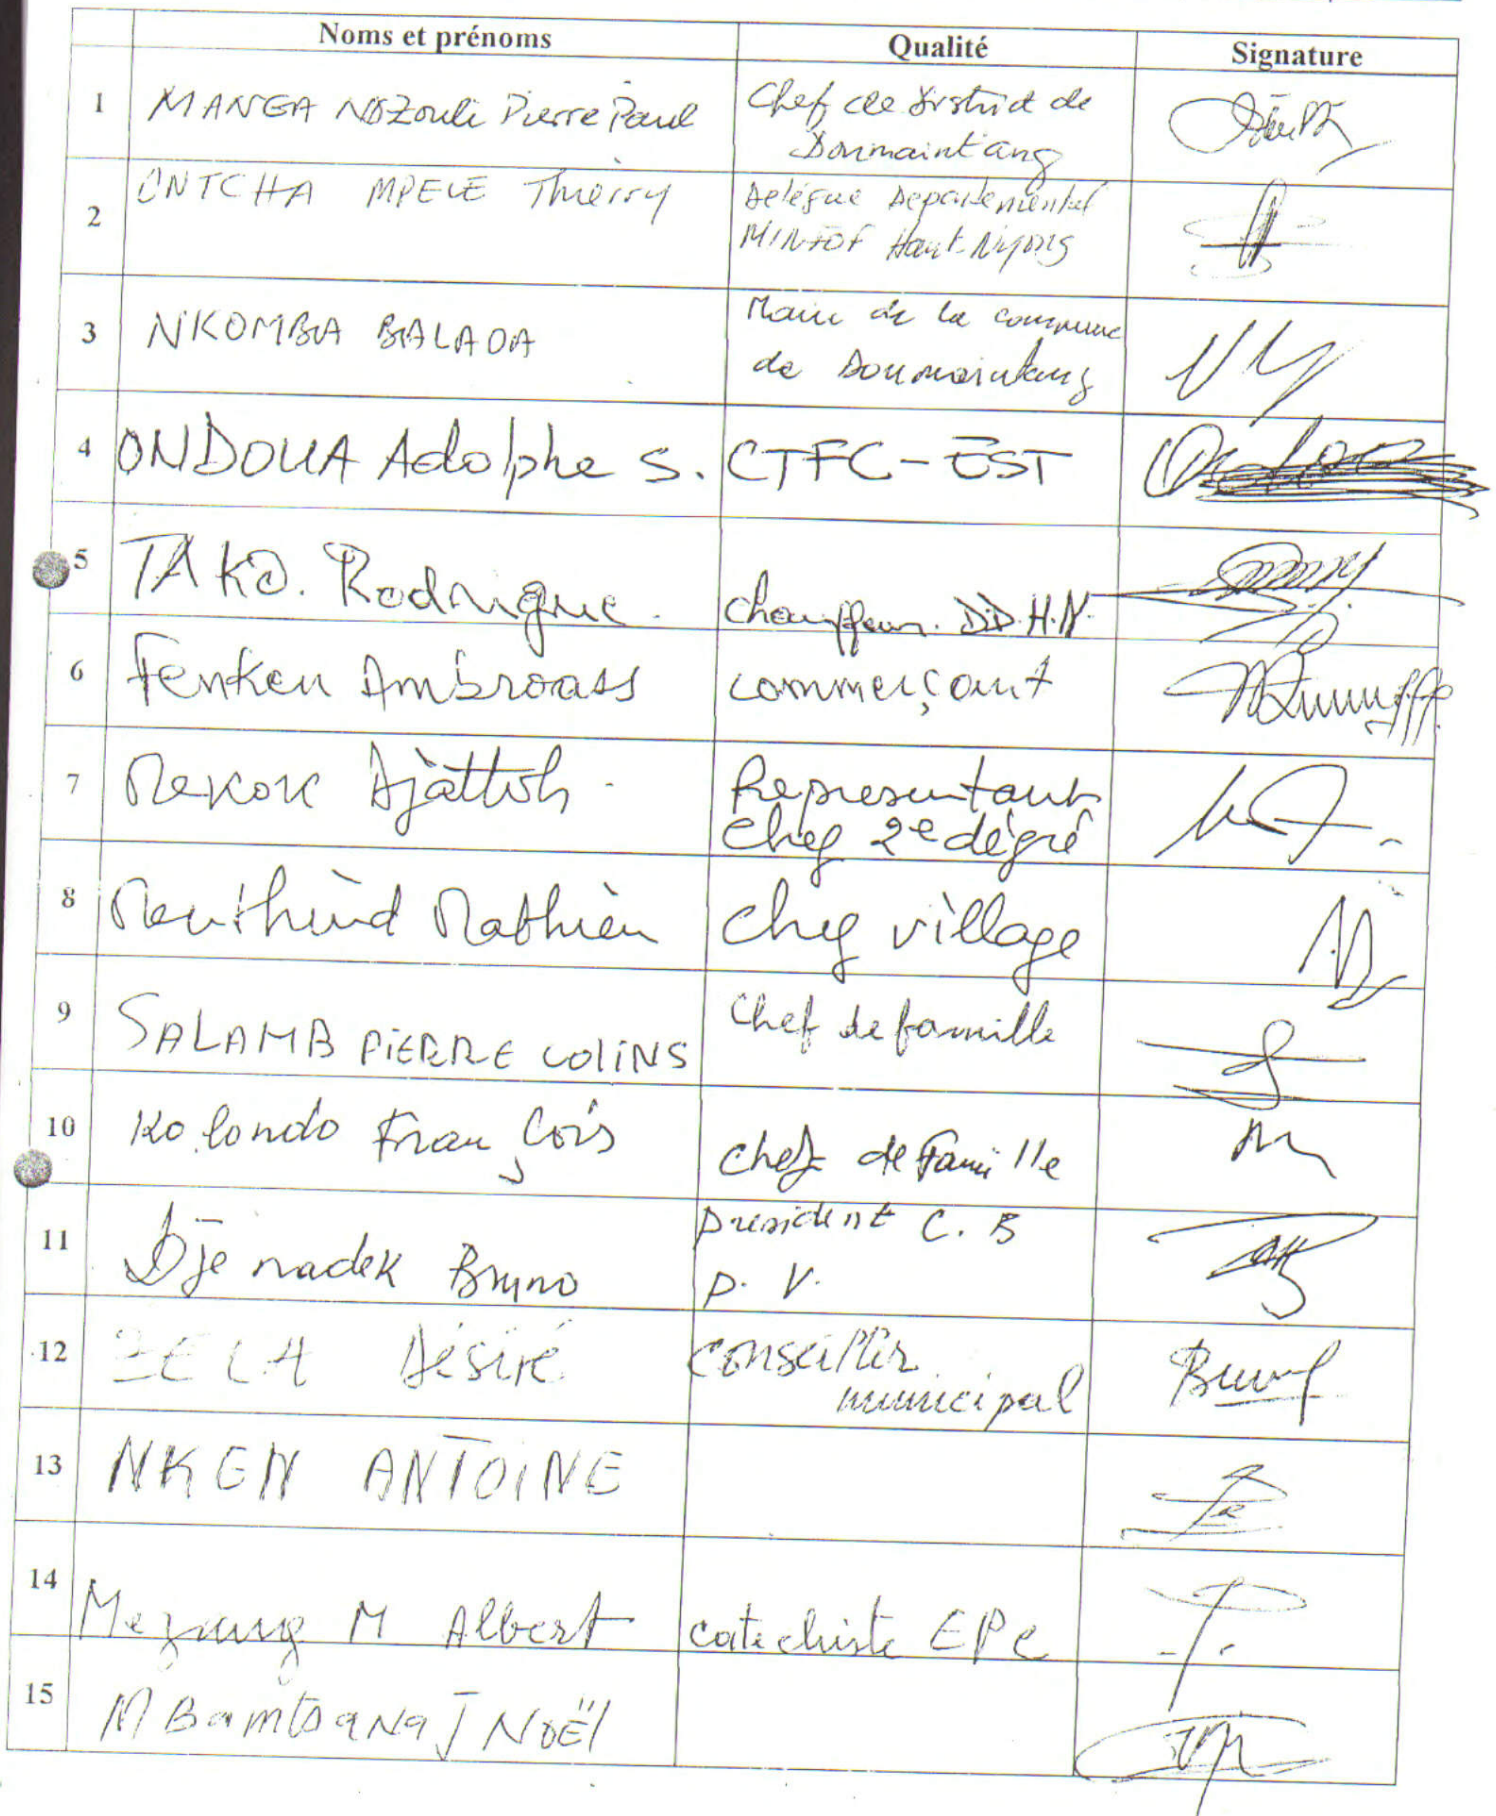 Noms et prénoms Qualité Signature
1 MANGA NDZouli Pierre Paul Chef de District de
Doumaintang
2 ONTCHA MPELE Thierry Délégué Departemental
MINFOF Haut-Nyong
3 NKOMBA BALADA Maire de la commune
de Doumaintang
4 ONDOUA Adolphe S. CTFC-EST
5 TAKO. Rodrigue. Chauffeur. D.D.H.N.
6 Fenken Ambroass commerçant
7 Mekok Djàttoh. Representant
Chef 2e dégré
8 Mathieu Chef village
9 SALAMB PIERRE COLINS Chef de famille
10 Kolondo François chef de Famille
11 Dje nadek Bruno président C. B
P. V.
12 Désiré Conseiller
municipal
13 NKEN ANTOINE
14 Mezang M Albert catechiste EPC
15 J NOËl